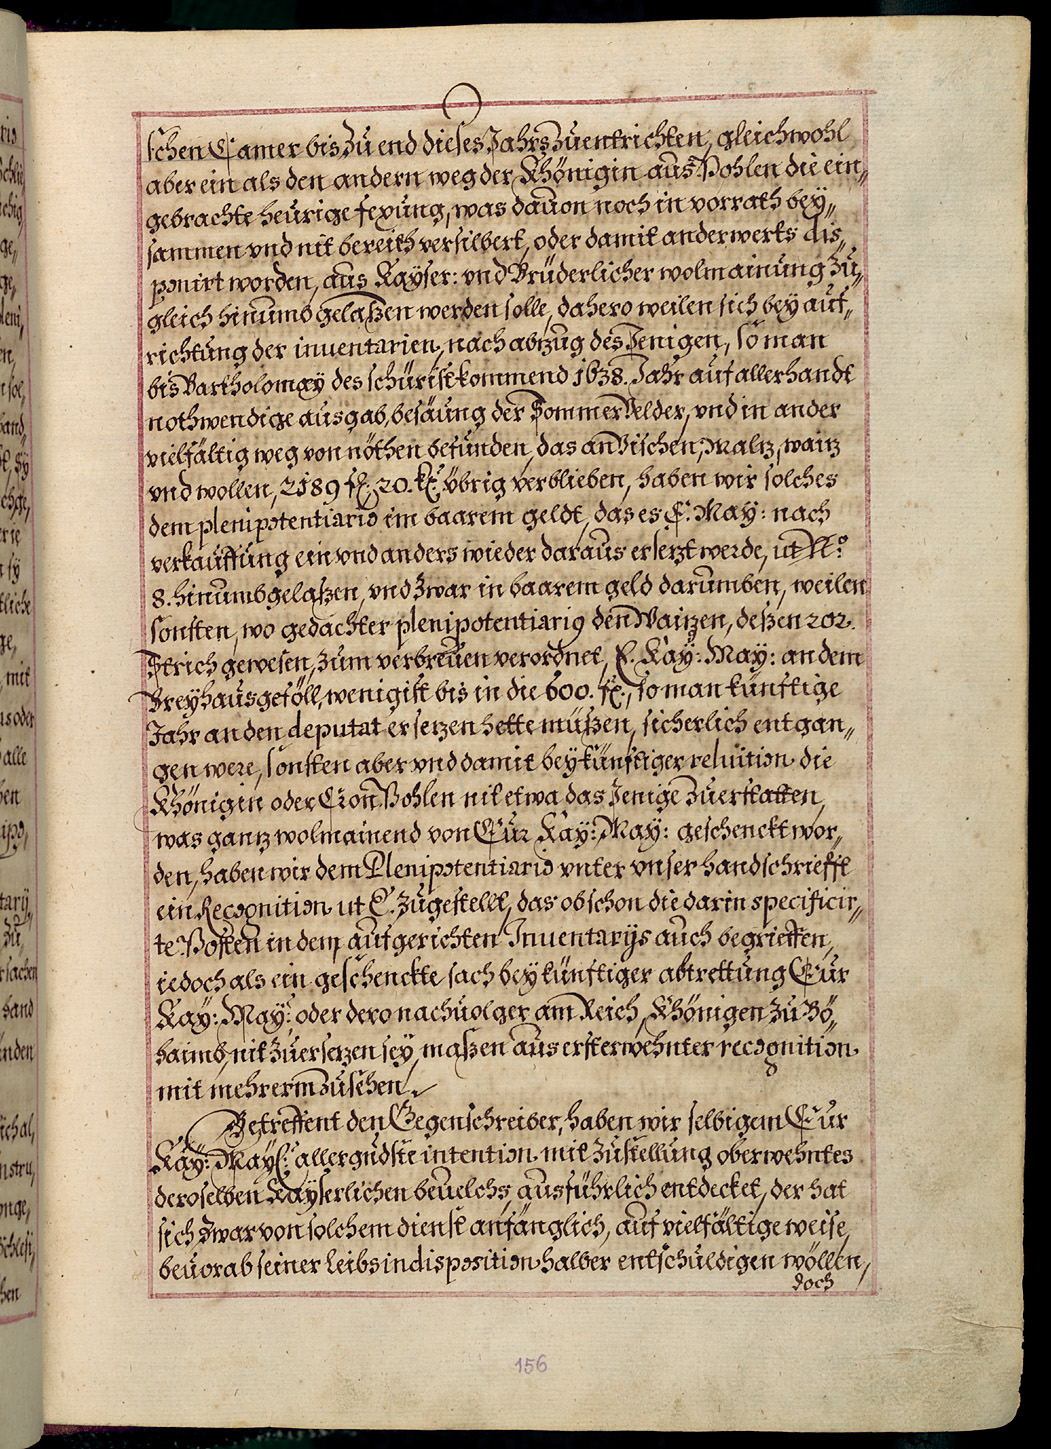 schen Camer bis zu end dieses Jahrs zuentrichten, gleichwohl
aber ein als den andern weg der Khönigin aus Pohlen die ein„
gebrachte heürige fexung, was dauon noch in vorrath bey„
sammen vnd nit bereith versilbert, oder damit anderwerts dis„
ponirt worden, aus Kayser: vnd Brüderlicher wolmainung zu„
gleich hinumb gelaßen werden solle, dahero weilen sich bey auf„
richtung der inuentarien, nach abzug des Jenigen, so man
bis Bartholomæy des schüristkommend 1638. Jahr auf allerhandt
nothwendige ausgab, besäung der Sommer Velder, vnd in ander
vielfältig weg von nöthen befunden, das an Vischen, Maltz, waitz
vnd wollen, 2589 fl: 20. kr. übrig verblieben, haben wir solches
dem plenipotentiario im baarem geldt, das es E: May: nach
verkauffung ein vnd anders wieder daraus ersetzt werde, ut No
8. hinumbgelaßen, vnd zwar in baarem geld darumben, weilen
sonsten, wo gedachter plenipotentiarius den Waitzen, deßen 202.
Strich gewesen, zum verbreuen verordnet, E. Kay: May: an dem
Breyhausgeföll, wenigist bis in die 600. fl., so man künfftige
Jahr an den deputat ersetzen hette müßen, sicherlich entgan„
gen were, sonsten aber vnd damit bey künfftiger reluition die
Khönigin oder Cron Pohlen nit etwa das Jenige zuerstatten,
was gantz wolmainend von Eür Kay: May: geschenckt wor„
den, haben wir dem Plenipotentiario vnter vnser handschriefft
ein Recognition ut C. zugestellt, das obschon die darin specificir„
te Posten in dem aufgerichten Inuentarijs auch begrieffen,
iedoch als ein geschenckte sach bey künfftiger abtrettung Eür
Kay: May: oder dero nachuolger am Reich, Khönigen zu Bö„
haimb, nit zuersetzen sey, maßen aus ersterwehnter recognition
mit mehrerm zusehen.
Betreffent den Gegenschreiber, haben wir selbigem Eür
Kay: May: allergndste intention mit zustellung oberwehntes
deroselben Kayserlichen beuelchs, ausführlich entdecket, der hat
sich zwar von solchem dienst anfänglich, auf vielfältige weise,
beuorab seiner Leibsindisposition halber entschuldigen wöllen,
doch
156